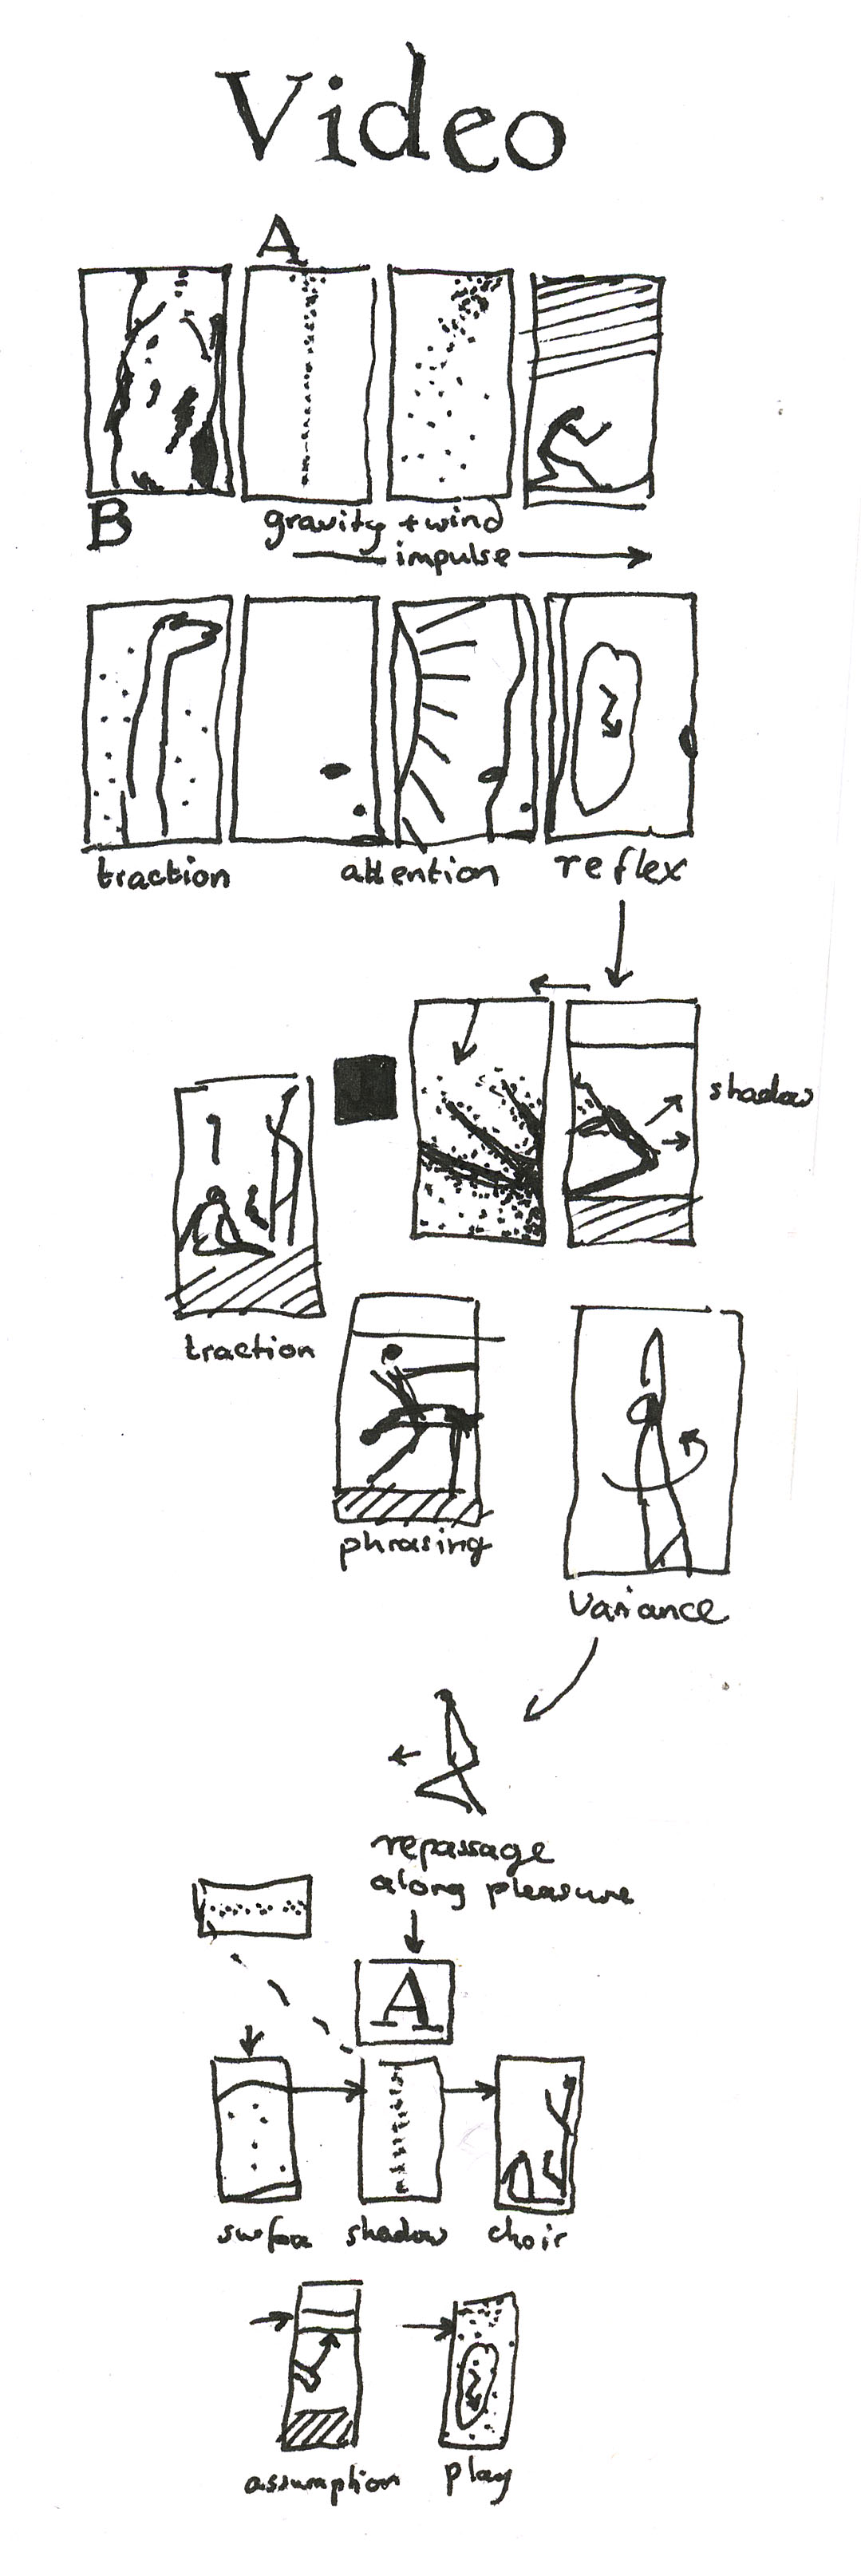 Video
A
B
gravity + wind
impulse
traction
attention
reflex
shadow
traction
phrasing
variance
repassage
along pleasure
A
surface
shadow
choir
assumption
play